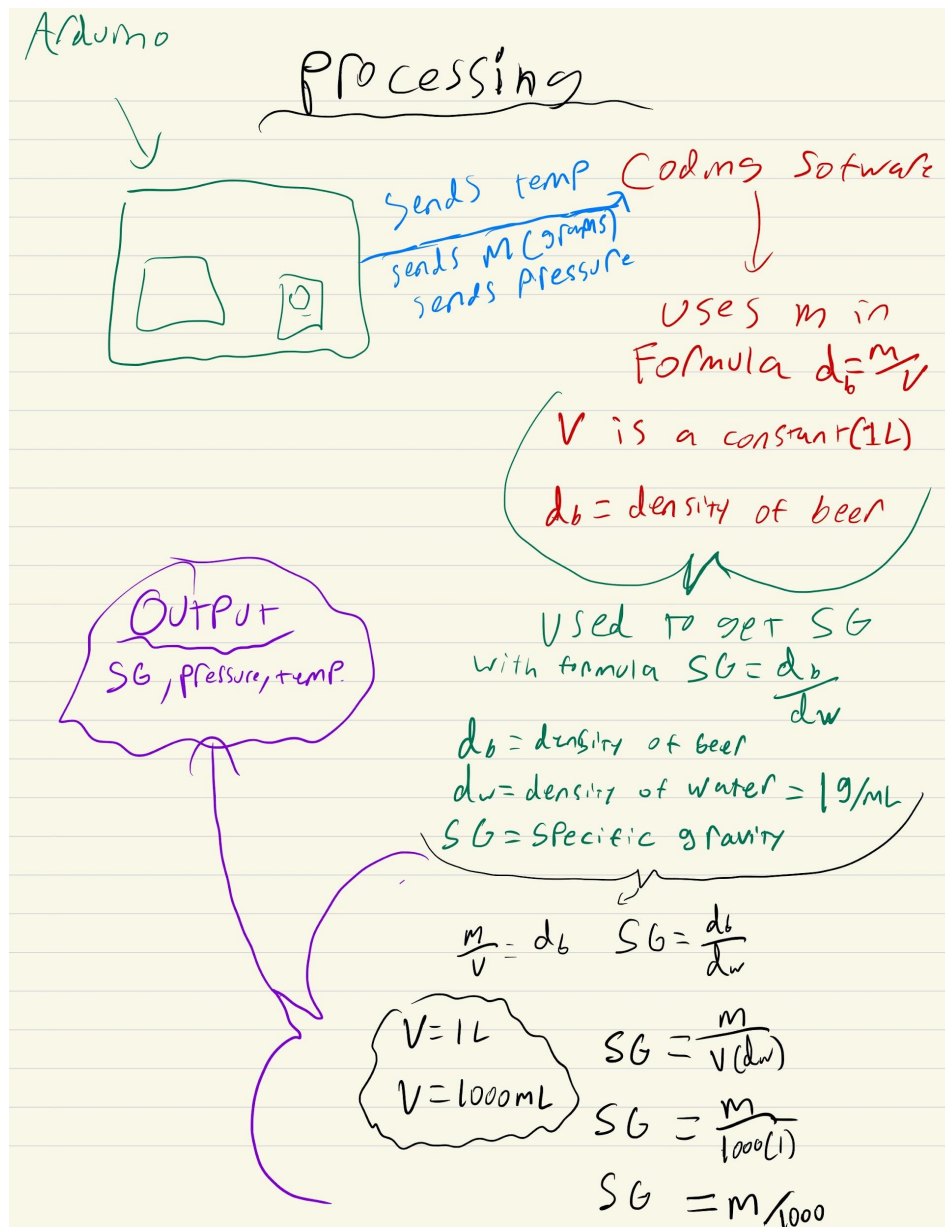 Arduino
Processing
Sends temp
sends M (grams)
sends pressure
Coding Sotware
Uses m in
Formula d_b = m/V
V is a constant (1L)
d_b = density of beer
Used to get SG
with formula SG = d_b/dw
d_b = density of beer
dw = density of water = 1 g/mL
SG = Specific gravity
OUTPUT
SG, pressure, temp.
m/V = d_b SG = d_b/dw
V = 1L
V = 1000mL
SG = m/V(dw)
SG = m/1000(1)
SG = m/1000